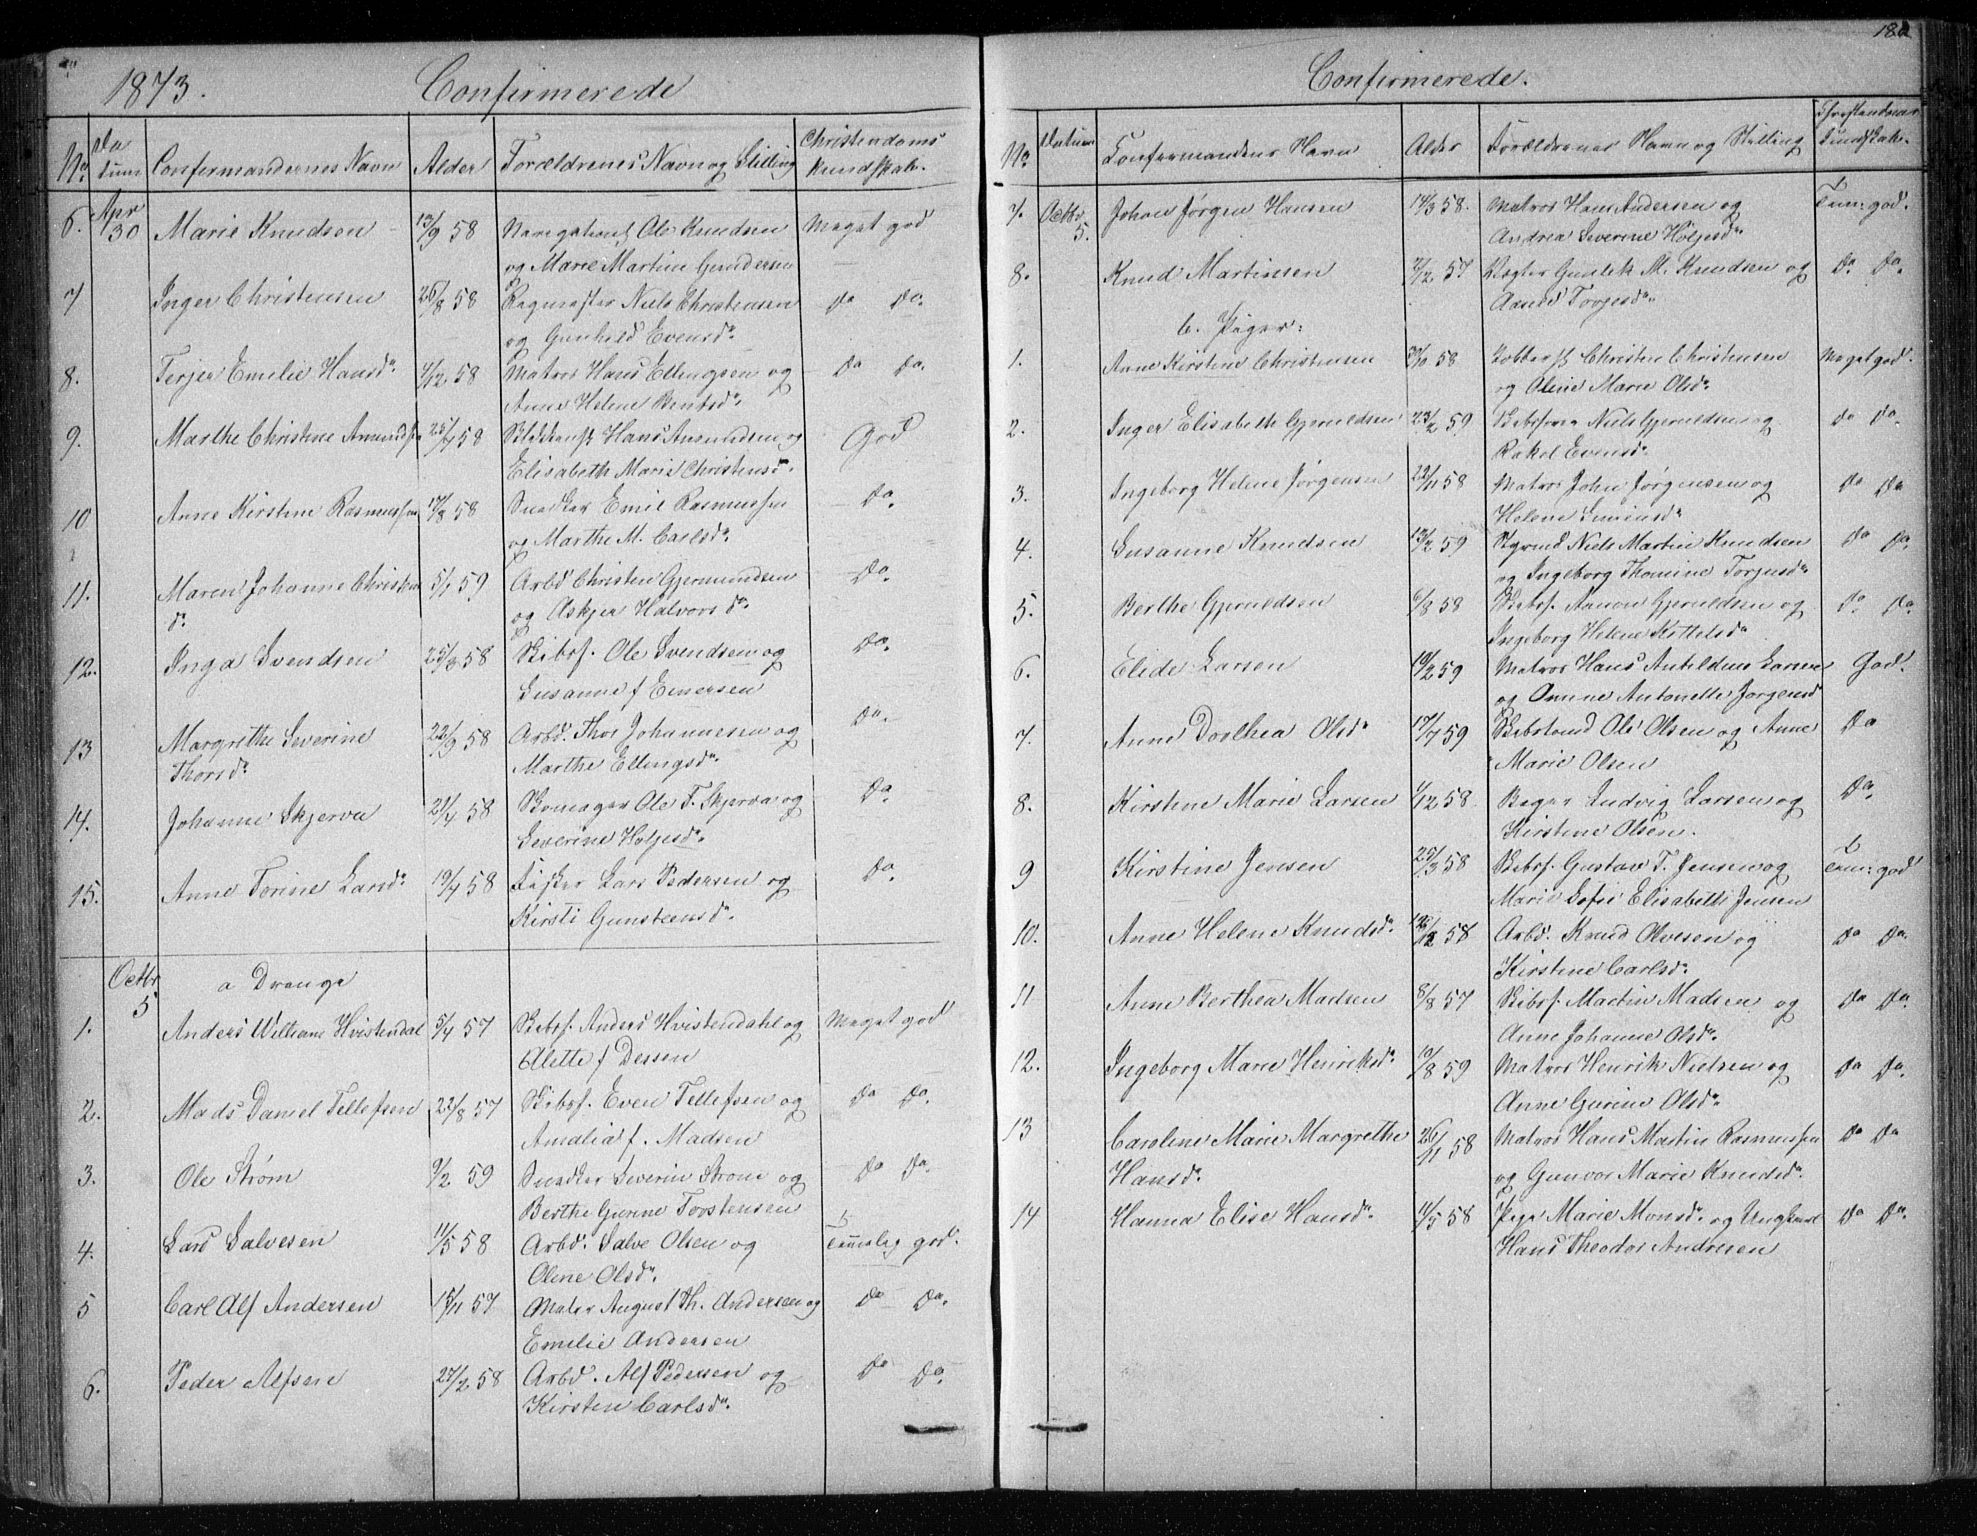 1873. Confirmerede
No. Datum Confirmandernes Navn Alder Forældrenes Navn og Stilling Christendoms kundskab.
6. Apr 30 Marie Knudsen 13/9 58 Ole Knudsen Meget god
og Marie Martine Gundersen
7 Inger Christensen 26/8 58 Niels Christensen do do.
og Gunhild Evensd.
8. Terjer Emilie Hansd. 4/12 58 Matros Hans Ellingsen og do do.
Anne Helene Bentsd.
9. Marthe Christine Amundsen 58 Hans Amundsen og God
Elisabeth Marie Christensd.
10 Anne Kirstine Rasmussen 17/8 58 Snedker Emil Rasmussen do.
og Marthe M. Carlsd.
11. Maren Johanne Christens 5/7 59 Arbd Christen Gjermundsen do.
d. og Askjer Halvorsd.
12. Inga Svendsen 25/3 58 Skibsf. Ole Svendsen og do.
Susanne f Emersen
13 Margrethe Severine 22/9 58 Arbd. Thor Johannesen og do.
Thorsd. Marthe Ellingsd.
14. Johanne Skjerva 21/4 58 Ole T. Skjerva og do.
Severine Holjesd.
15. Anne Torine Larsd. 19/4 58 Fisker Lars Pedersen og do.
Kirsti Gunsteensd.
Octbr 5 a Drenge
1. Anders William Hvistendal 5/4 57 Skibsf. Anders Hvistendahl og Meget god
Alette f Dessen
2. Mads Daniel Tellefsen 22/8 57 Skibsf. Even Tellefsen og do do.
Amalia f. Madsen
3. Ole Strøm 9/2 59 Snedker Severin Strøm og do do.
Berthe Gurine Torstensen
4. Lars Salvesen 11/5 58 Arbd. Salve Olsen og Temmelig god.
Olene Olsd.
5 Carl Alf Andersen 15/11 57 August Th. Andersen og do do.
Emilie Andersen
6. Peder Alfsen 27/2 58 Arbd. Alf Pedersen og do do.
Kirsten Carlsd.
Confirmerede.
No Datum Confirmandens Navn Alder Forældrenes Navn og Stilling Christendoms Kundskab.
7. Octbr 5. Johan Jørgen Hansen 14/3 58. Matros Hans Andersen og Tem: god.
Andrea Severine Holjesd.
8. Knud Martinsen 57 Gunlek M. Knudsen og do do.
Aasne Torjesd.
b. Piger:
1. Anne Kirstine Christensen 58 Christen Christensen Meget god.
og Oline Marie Olsd.
2. Inger Elisabeth Gjeruldsen 23/2 59 Niels Gjeruldsen og do do.
Rakel Evensd.
3. Ingeborg Helene Jørgensen 22/11 58 Matros John Jørgensen og do do
Helene
4. Susanne Knudsen 13/2 59 Styrmd Niels Martin Knudsen do do.
og Ingeborg Thomine Torjusd.
5. Berthe Gjeruldsen 6/8 58 Skibsf. Aanon Gjeruldsen og do do.
Ingeborg Helene Kittelsd.
6. Elide Larsen 59 Matros Hans Larsen God.
og Antonette Jørgensd
7. Anne Dorthea Olsd. 17/7 59 Ole Olsen og Anne do
Marie Olsen
8. Kirstine Marie Larsen 1/12 58. Bager Ludvig Larsen og do.
Kirstine Olsen.
9 Kirstine Jensen 25/3 58 Skibsf. Gustav T. Jensen og Tem: god
Marie Sofie Elisabeth Jensen
10. Anne Helene Knudsd. 58 Arbd. Knud Olvesen og do do.
Kirstine Carlsd.
11 Anne Berthea Madsen 8/8 57 Skibsf. Martin Madsen og do do.
Anne Johanne Olsd.
12. Ingeborg Marie Henriksd. 10/8 59 Matros Henrik Nielsen og do do.
Anne Gurine Olsd.
13 Caroline Marie Margrethe 26/11 58 Matros Hans Martin Rasmussen do do
Hansd. og Gunvor Marie Knudsd.
14 Hanna Elise Hansd. 11/5 58 Pige Marie Monsd. og Ungkarl do do.
Hans Theodor Andresen